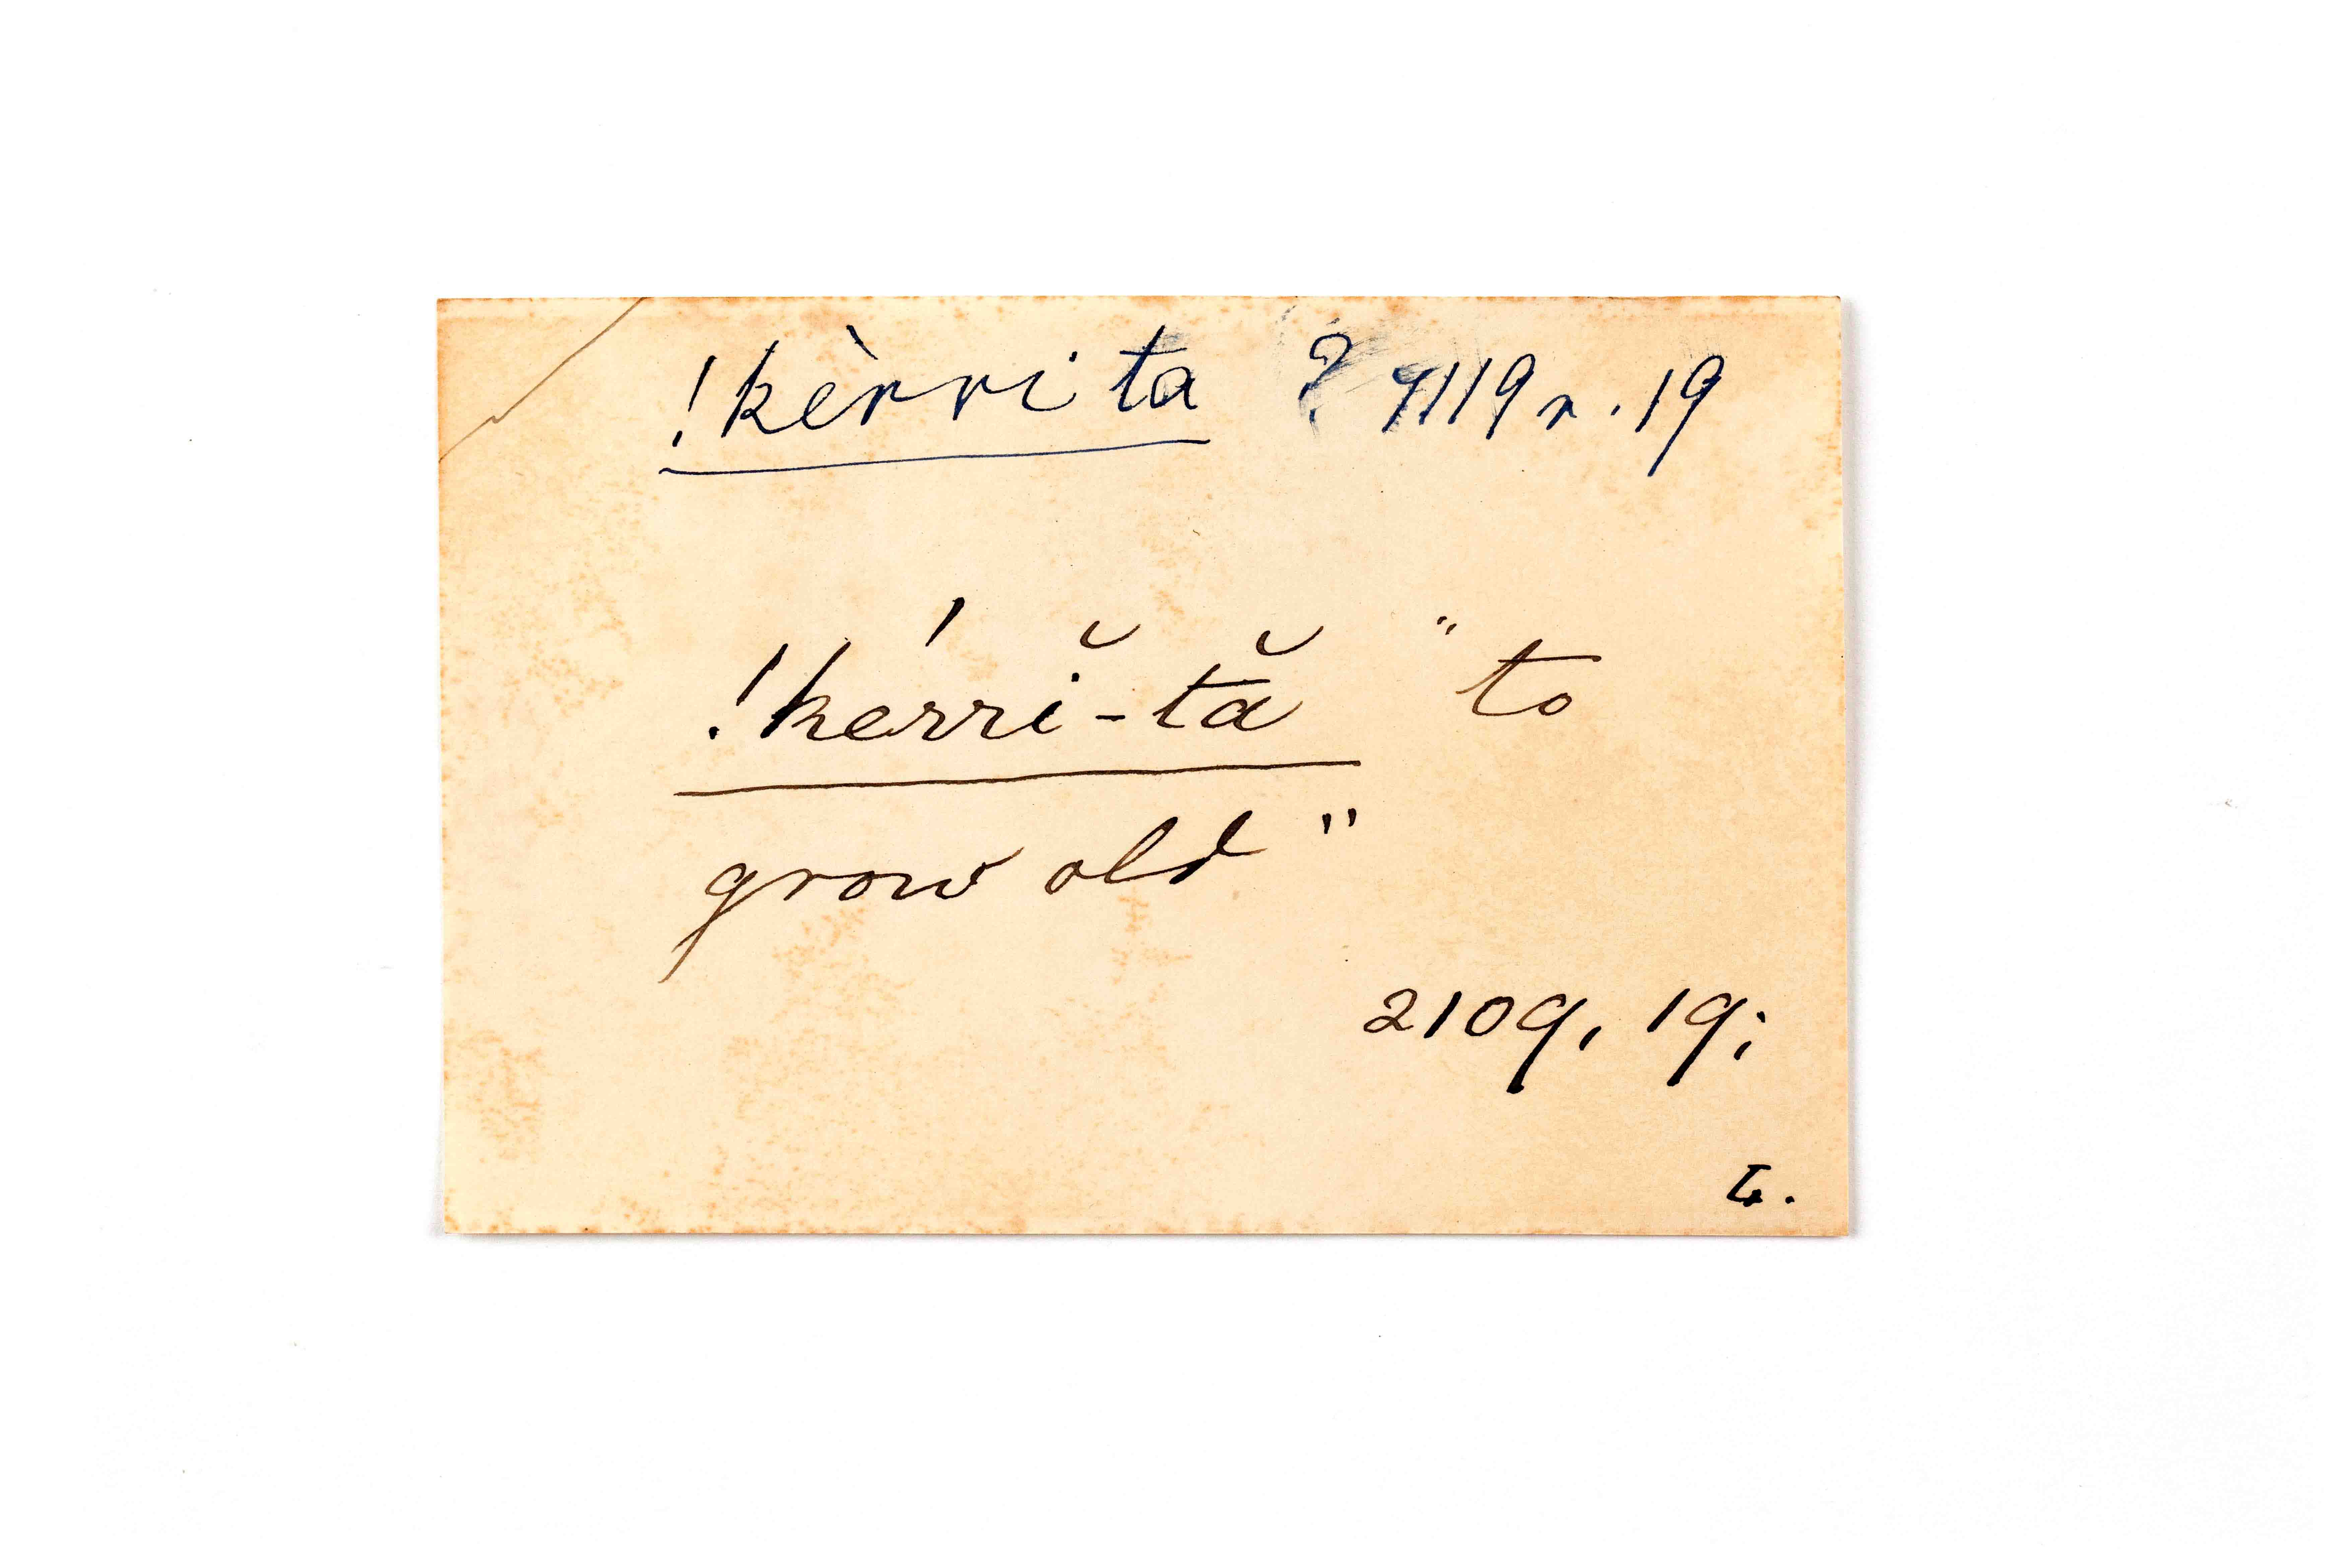 !kèrri ta ? 9119 r. 19
!kérrĭ-tă "to
grow old"
2109, 19;
L.